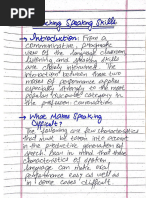 Teaching Speaking Skills
→ Introduction: From a
communicative, pragmatic
view of the language classroom
listening and speaking skills
are closely intertwined. The
interaction between these two
modes of performance applies
especially strongly to the most
popular
the profession: conversation
→ What Makes Speaking
Difficult?
Following are few characteristics
that must be taken into account
in the productive generation of
speech. Bear in mind that these
characteristics of spoken
language can make oral
performance easy as well as
in some cases difficult.